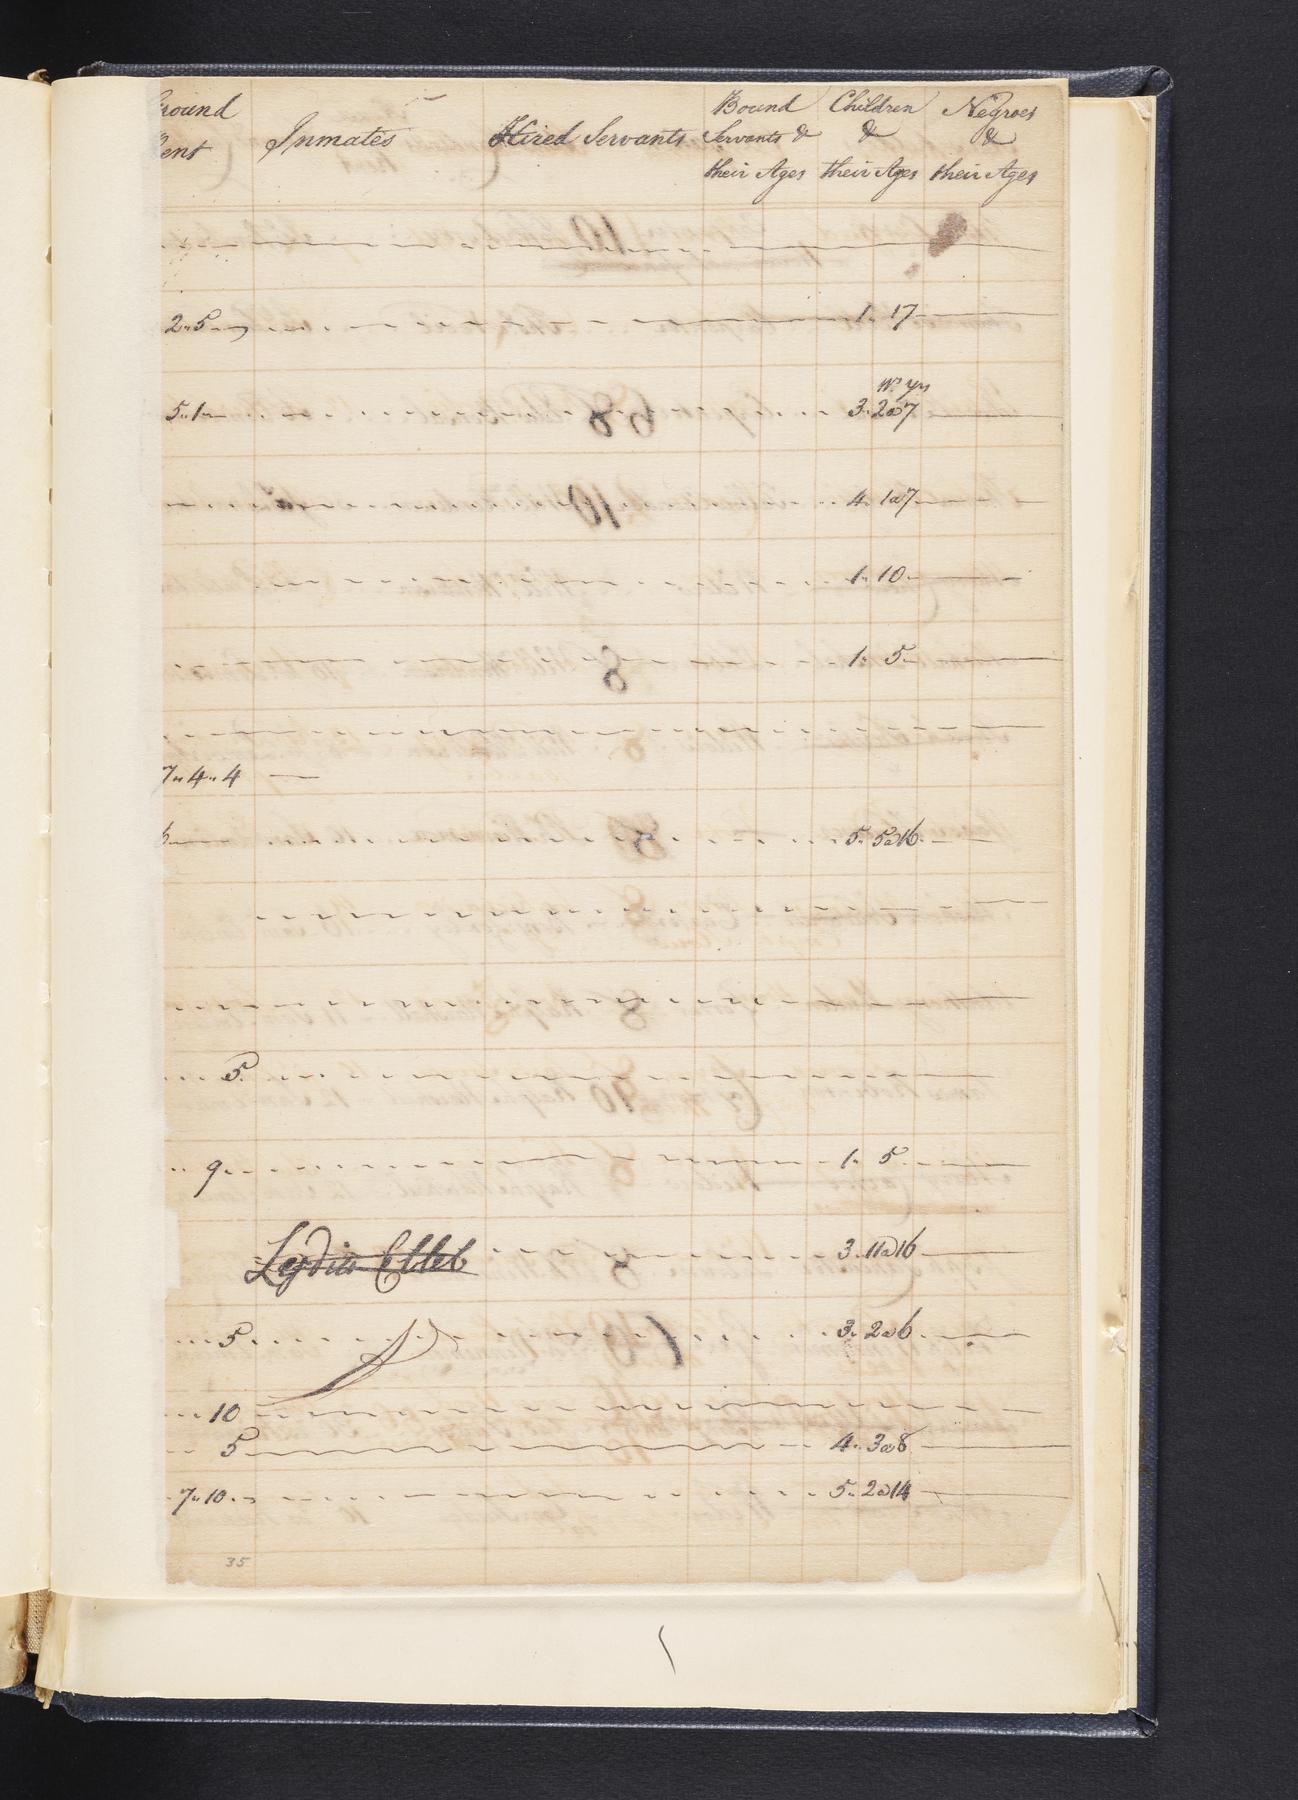 Ground Rent Inmates Hired Servants Bound Servants & their Ages Children & their Ages Negroes & their Ages
2" 5 1" 17
Ws yrs
5" 1 3" 2 a 7
4" 1 a 7
1" 10
1" 5
7" 4" 4
5" 5 a 16
5
9 1" 5
Lydia 3" 11 a 16
5 3" 2 a 6
10
5 4" 3 a 8
7" 10 5" 2 a 14
35